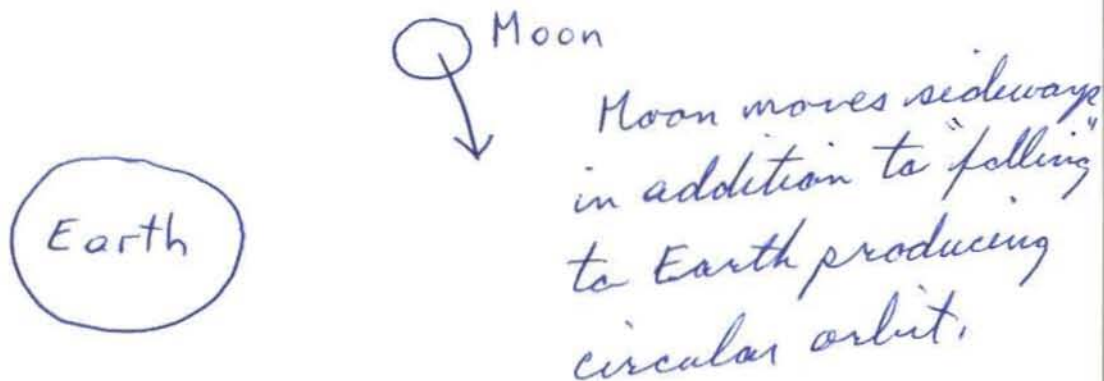 Moon
Earth
Moon moves sideways
in addition to "falling"
to Earth producing
circular orbit.